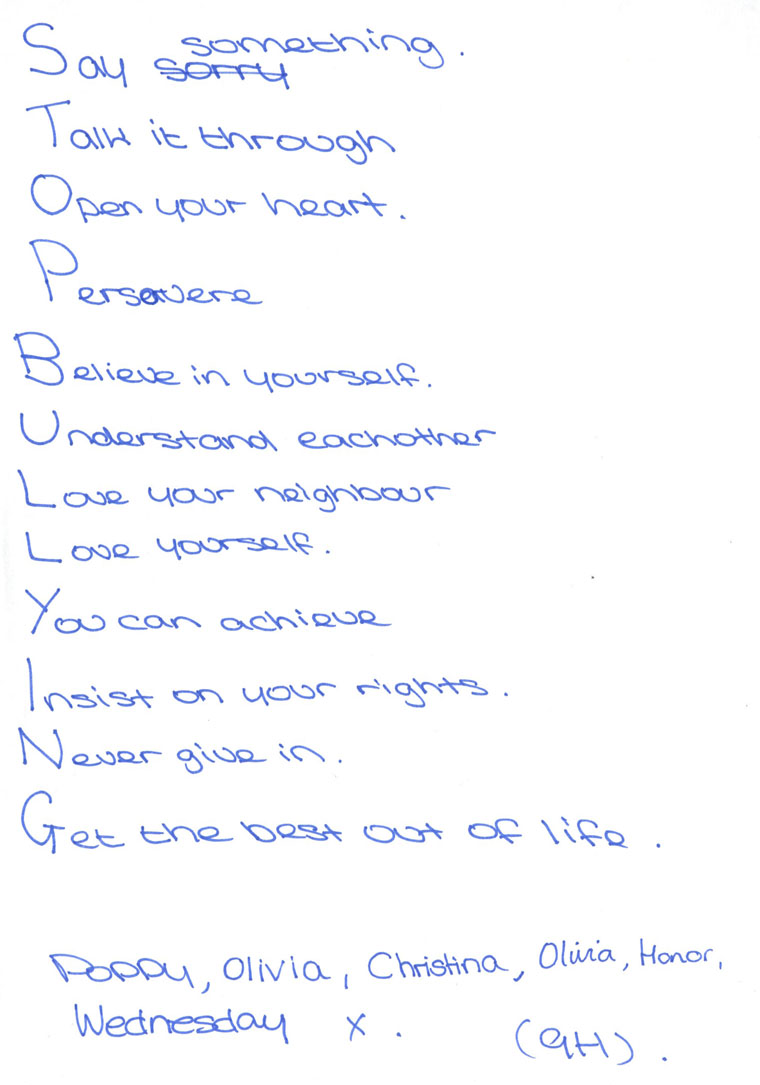 Say sorry something.
Talk it through
Open your heart.
Persevere
Believe in yourself.
Understand eachother
Love your neighbour
Love yourself.
You can achieve
Insist on your rights.
Never give in.
Get the best out of life.
Poppy, Olivia, Christina, Olivia, Honor,
Wednesday x. (9H).